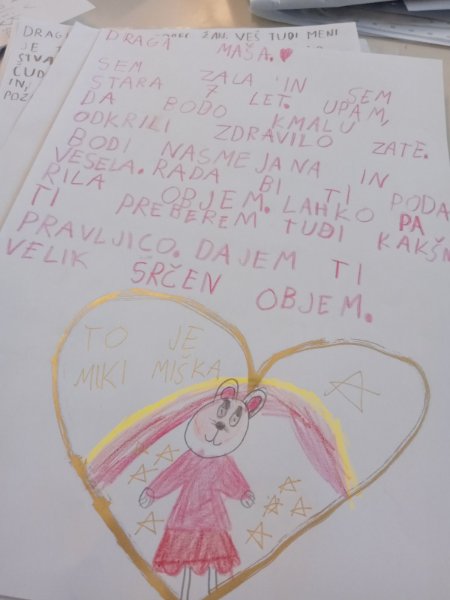 DRAGA MAŠA.
SEM ZALA IN SEM
STARA 7 LET. UPAM,
DA BODO KMALU
ODKRILI ZDRAVILO ZATE.
BODI NASMEJANA IN
VESELA. RADA BI TI PODA
RILA OBJEM. LAHKO PA
TI PREBEREM TUDI KAKŠN
PRAVLJICO. DAJEM TI
VELIK SRČEN OBJEM.
TO JE
MIKI MIŠKA
DRAG
VEŠ TUDI MENI
JE
ČUD
IN,